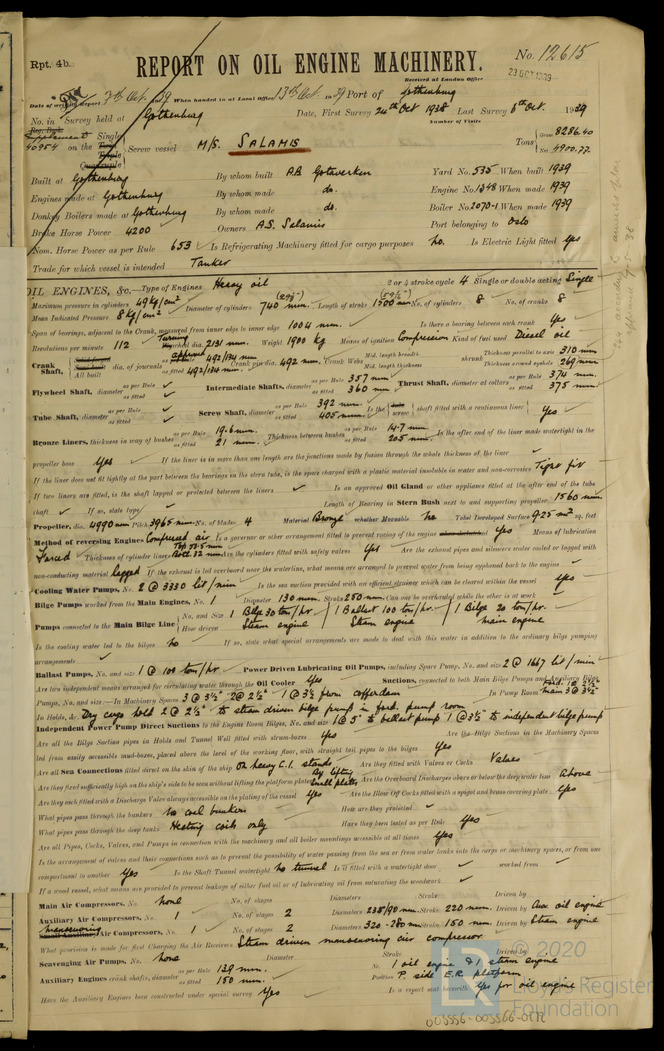 Rpt. 4b.
REPORT ON OIL ENGINE MACHINERY.
No. 12615
Received at London Office
23 OCT 1939
Date of writing Report 7th Oct. 1939 When handed in at Local Office 13th Oct. 1939 Port of Gothenburg
No. in Survey held at Gothenburg Date, First Survey 24th Oct 1938 Last Survey 6th Oct. 1939
Reg. Book. Number of Visits
Supplement
40954 on the Single Screw vessel M/S. SALAMIS Tons Gross 8286.40
Net 4900.77
Twin
Triple
Quadruple
Built at Gothenburg By whom built AB Götaverken Yard No. 535 When built 1939
Engines made at Gothenburg By whom made do. Engine No. 1348 When made 1939
Donkey Boilers made at Gothenburg By whom made do. Boiler No. 2070-1 When made 1939
Brake Horse Power 4200 Owners A.S. Salamis Port belonging to Oslo
Nom. Horse Power as per Rule 653 Is Refrigerating Machinery fitted for cargo purposes no. Is Electric Light fitted Yes
Trade for which vessel is intended Tanker
OIL ENGINES, &c.—Type of Engines Heavy oil 2 or 4 stroke cycle 4 Single or double acting Single
Maximum pressure in cylinders 49 kg/cm² Diameter of cylinders 740 mm. Length of stroke 1500 mm. No. of cylinders 8 No. of cranks 8
Mean Indicated Pressure 8 kg/cm²
Span of bearings, adjacent to the Crank, measured from inner edge to inner edge 1004 mm. Is there a bearing between each crank Yes
Revolutions per minute 112 Turning wheel dia. 2131 mm. Weight 1900 kg Means of ignition Compression Kind of fuel used Diesel oil
Crank Shaft, dia. of journals approved 492/134 mm as fitted 492/134 mm. Crank pin dia. 492 mm. Crank Webs Mid. length breadth Mid. length thickness shrunk Thickness parallel to axis 310 mm Thickness around eyeholes 269 mm
All built
Flywheel Shaft, diameter as per Rule as fitted Intermediate Shafts, diameter as per Rule 357 mm as fitted 360 mm. Thrust Shaft, diameter at collars as per Rule 374 mm. as fitted 375 mm.
Tube Shaft, diameter as per Rule as fitted Screw Shaft, diameter as per Rule 392 mm. as fitted 405 mm. Is the screw shaft fitted with a continuous liner Yes
Bronze Liners, thickness in way of bushes as per Rule 19.6 mm. as fitted 21 mm. Thickness between bushes as per Rule 14.7 mm. as fitted 20.5 mm. Is the after end of the liner made watertight in the
propeller boss Yes If the liner is in more than one length are the junctions made by fusion through the whole thickness of the liner
If the liner does not fit tightly at the part between the bearings in the stern tube, is the space charged with a plastic material insoluble in water and non-corrosive Tight fit
If two liners are fitted, is the shaft lapped or protected between the liners Is an approved Oil Gland or other appliance fitted at the after end of the tube
shaft If so, state type Length of Bearing in Stern Bush next to and supporting propeller 1560 mm
Propeller, dia. 4990 mm Pitch 3965 mm. No. of blades 4 Material Bronze whether Moveable no Total Developed Surface 9.25 m² sq. feet
Method of reversing Engines Compressed air Is a governor or other arrangement fitted to prevent racing of the engine Yes Means of lubrication
Forced Thickness of cylinder liners Are the cylinders fitted with safety valves Yes Are the exhaust pipes and silencers water cooled or lagged with
non-conducting material lagged If the exhaust is led overboard near the waterline, what means are arranged to prevent water being syphoned back to the engine
Cooling Water Pumps, No. 2 @ 3330 lit/min Is the sea suction provided with an efficient strainer which can be cleared within the vessel Yes
Bilge Pumps worked from the Main Engines, No. 1 Diameter 130 mm. Stroke 250 mm. Can one be overhauled while the other is at work
Pumps connected to the Main Bilge Line No. and Size 1 Bilge 30 ton/hr. 1 Ballast 100 ton/hr. 1 Bilge 20 ton/hr.
How driven Steam engine Steam engine main engine
Is the cooling water led to the bilges no If so, state what special arrangements are made to deal with this water in addition to the ordinary bilge pumping
arrangements
Ballast Pumps, No. and size 1 @ 100 ton/hr. Power Driven Lubricating Oil Pumps, including Spare Pump, No. and size 2 @ 1667 lit/min
Are two independent means arranged for circulating water through the Oil Cooler Yes Suctions, connected to both Main Bilge Pumps and Auxiliary Bilge
Pumps, No. and size:—In Machinery Spaces 3 @ 3½" 2 @ 2½" 1 @ 3½ from cofferdam In Pump Room main 3 @ 3½"
In Holds, &c. Dry cargo hold 2 @ 2½" to steam driven bilge pump in forwd. pump room
Independent Power Pump Direct Suctions to the Engine Room Bilges, No. and size 1 @ 5" to ballast pump 1 @ 3½" to independent bilge pump
Are all the Bilge Suction pipes in Holds and Tunnel Well fitted with strum-boxes Yes Are the Bilge Suctions in the Machinery Spaces
led from easily accessible mud-boxes, placed above the level of the working floor, with straight tail pipes to the bilges Yes
Are all Sea Connections fitted direct on the skin of the ship On heavy C.I. stands Are they fitted with Valves or Cocks Valves
Are they fixed sufficiently high on the ship's side to be seen without lifting the platform plates By lifting small plates Are the Overboard Discharges above or below the deep water line Above
Are they each fitted with a Discharge Valve always accessible on the plating of the vessel Yes Are the Blow Off Cocks fitted with a spigot and brass covering plate Yes
What pipes pass through the bunkers No coal bunkers How are they protected
What pipes pass through the deep tanks Heating coils only Have they been tested as per Rule Yes
Are all Pipes, Cocks, Valves, and Pumps in connection with the machinery and all boiler mountings accessible at all times Yes
Is the arrangement of valves and their connections such as to prevent the possibility of water passing from the sea or from water tanks into the cargo or machinery spaces, or from one
compartment to another Yes Is the Shaft Tunnel watertight no tunnel Is it fitted with a watertight door worked from
If a wood vessel, what means are provided to prevent leakage of either fuel oil or of lubricating oil from saturating the woodwork
Main Air Compressors, No. none No. of stages Diameters Stroke Driven by
Auxiliary Air Compressors, No. 1 No. of stages 2 Diameters 238/90 mm. Stroke 220 mm. Driven by Aux oil engine
manoeuvring Air Compressors, No. 1 No. of stages 2 Diameters 320-280 mm Stroke 150 mm. Driven by Steam engine
What provision is made for first Charging the Air Receivers Steam driven manoeuvring air compressor
Scavenging Air Pumps, No. none Diameter Stroke Driven by
Auxiliary Engines crank shafts, diameter as per Rule 139 mm. as fitted 150 mm. No. 1 oil engine & 1 steam engine
Position P. side E.R. platform
Have the Auxiliary Engines been constructed under special survey Yes Is a report sent herewith Yes for oil engine
© 2020
Lloyd's Register
Foundation